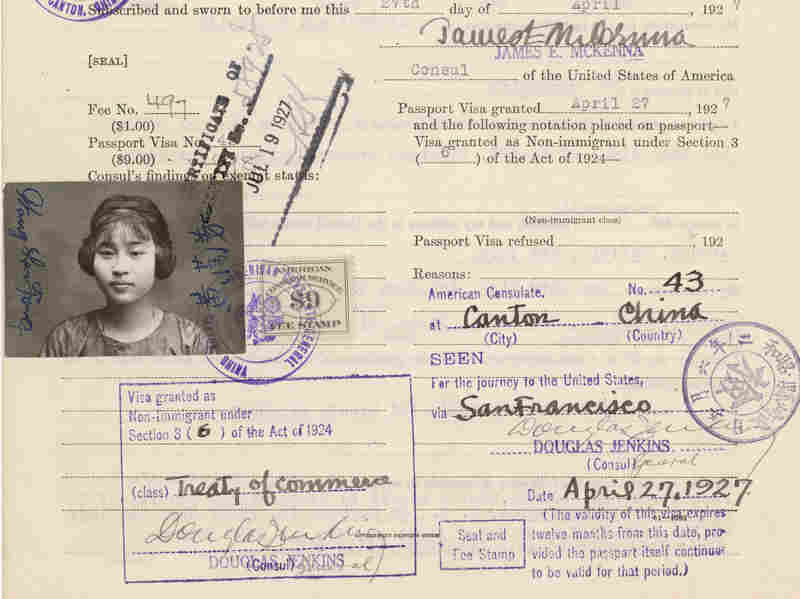 CANTON, CHINA
Subscribed and sworn to before me this 27th day of April, 1927
James E McKenna
JAMES E. MCKENNA
[SEAL]
Consul of the United States of America
CERTIFICATE OF
JUL 19 1927
Fee No. 497
($1.00)
Passport Visa No.
($9.00)
Consul's findings on exempt status:
Passport Visa granted April 27, 1927
and the following notation placed on passport—
Visa granted as Non-immigrant under Section 3
( 6 ) of the Act of 1924—
(Non-immigrant class)
Passport Visa refused , 192
Reasons:
AMERICAN
$9
FEE STAMP
American Consulate. No. 43
at Canton China
(City) (Country)
SEEN
For the journey to the United States,
via San Francisco
Douglas Jenkins
DOUGLAS JENKINS
(Consul) General
Date April 27, 1927
(The validity of this visa expires
twelve months from this date, pro-
vided the passport itself continues
to be valid for that period.)
Seal and
Fee Stamp
Visa granted as
Non-Immigrant under
Section 3 ( 6 ) of the Act of 1924
(class) Treaty of commerce
Douglas Jenkins
DOUGLAS JENKINS
(Consul General)